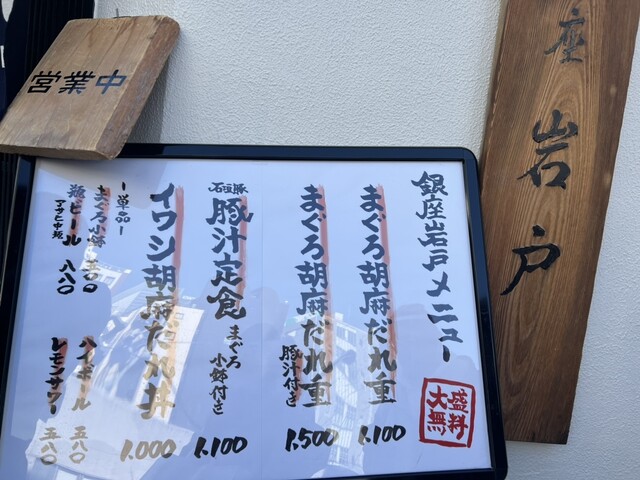 営業中
座岩戸
銀座岩戸メニュー
大盛無料
まぐろ胡麻だれ重
1.100
まぐろ胡麻だれ重
豚汁付き
1.500
石垣豚
豚汁定食
まぐろ小鉢付き
1.100
イワシ胡麻だれ丼
1.000
ー単品ー
まぐろ小鉢
瓶ビール 八八〇
アサヒ中瓶
ハイボール 五八〇
レモンサワー 五八〇